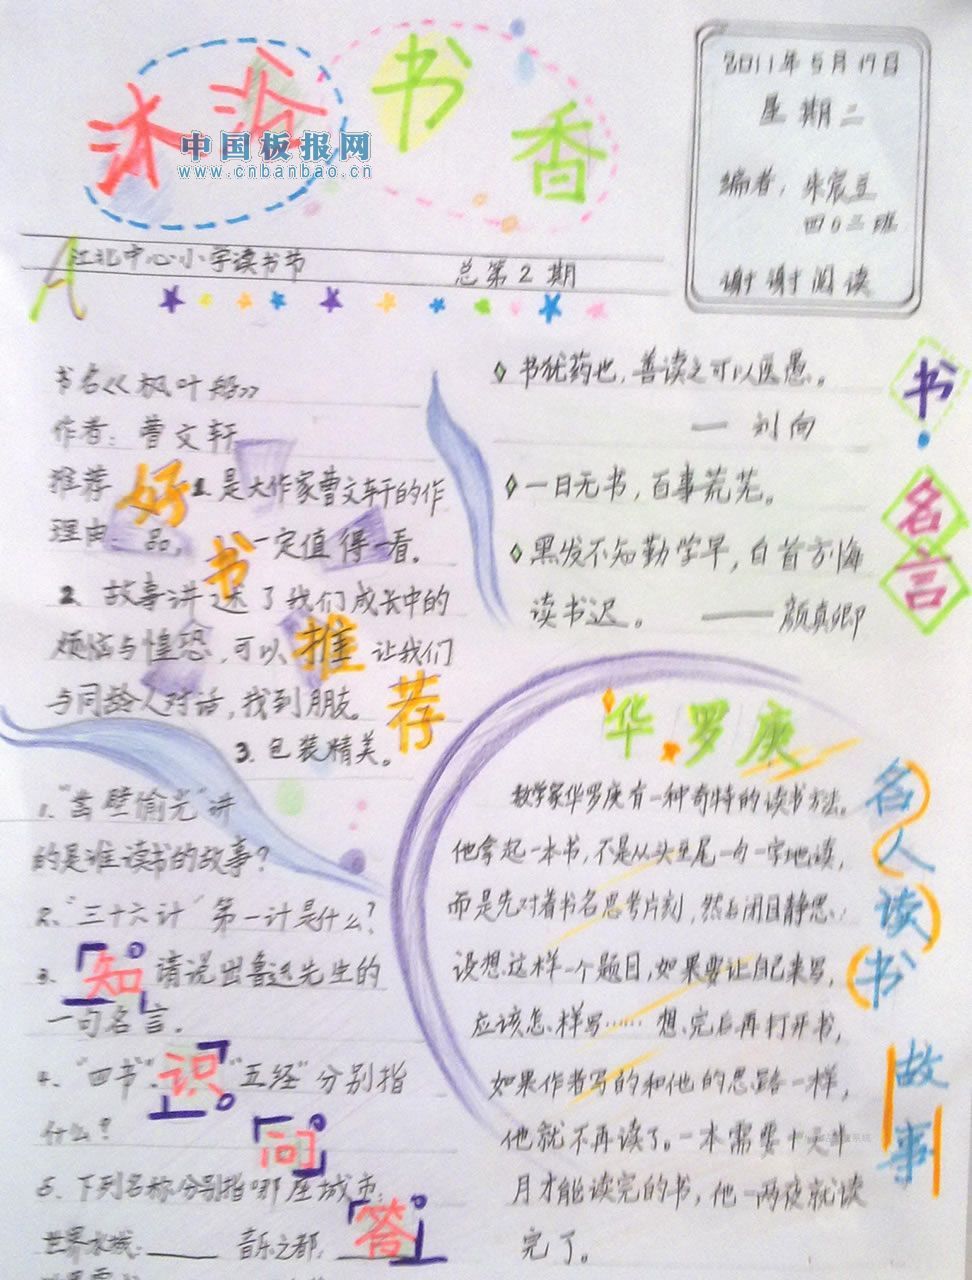 沐浴书香
中国板报网
www.cnbanbao.cn
2011年5月17日
星期二
编者：朱宸
四(2)班
谢谢阅读
江北中心小学读书节
总第2期
书名《枫叶船》
作者：曹文轩
推荐
理由：
1. 是大作家曹文轩的作
品，一定值得一看。
2. 故事讲述了我们成长中的
烦恼与惶恐，可以让我们
与同龄人对话，找到朋友。
3. 包装精美。
好书推荐
书犹药也，善读之可以医愚。
— 刘向
一日无书，百事荒芜。
黑发不知勤学早，白首方悔
读书迟。 ——颜真卿
书名言
1、"凿壁偷光"讲
的是谁读书的故事？
2、"三十六计"第一计是什么？
3、请说出鲁迅先生的
一句名言。
4、"四书"、"五经"分别指
什么？
5、下列名称分别指哪座城市：
世界水城：____ 音乐之都：____
知识问答
华罗庚
数学家华罗庚有一种奇特的读书方法。
他拿起一本书，不是从头至尾一句一字地读，
而是先对着书名思考片刻，然后闭目静思：
设想这样一个题目，如果要让自己来写，
应该怎样写……想完后再打开书，
如果作者写的和他的思路一样，
他就不再读了。一本需要十天半
月才能读完的书，他一两夜就读
完了。
名人读书故事